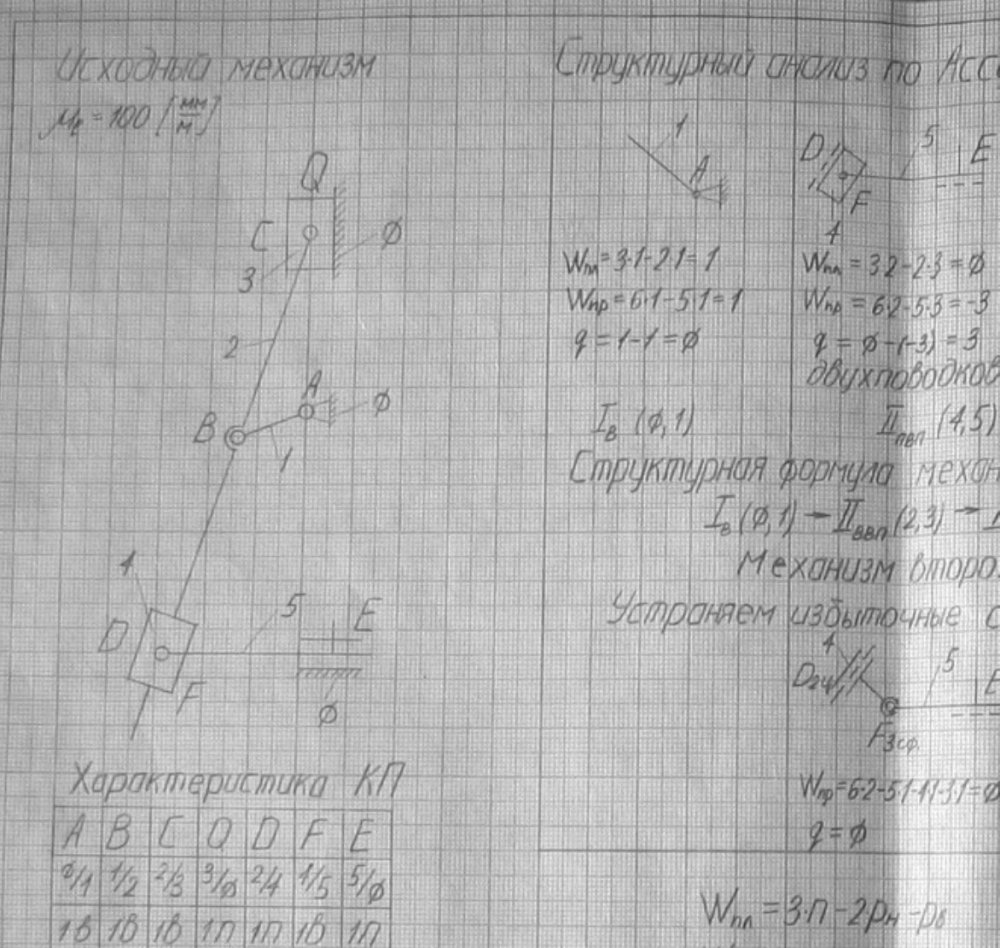 Исходный механизм
μℓ = 100 [мм/м]
Q
C
Ø
3
2
A
Ø
B
1
4
5
E
D
F
Ø
Характеристика КП
A B C Q D F E
Ø/1 1/2 2/3 3/Ø 2/4 1/5 5/Ø
1В 1В 1В 1П 1П 1В 1П
Структурный анализ по
1
A
Wпл = 3·1-2·1 = 1
Wпр = 6·1-5·1 = 1
q = 1-1 = Ø
I в (Ø,1)
D
5
E
F
4
Wпл = 3·2-2·3 = Ø
Wпр = 6·2-5·3 = -3
q = Ø-(-3) = 3
II пвп (4,5)
Структурная формула
I в (Ø,1) → II ввп (2,3) →
Механизм
Устраняем избыточные
4
5
D2ц
E
F3сф.
Wпр = 6·2-5·1-4·1-3·1 = Ø
q = Ø
Wпл = 3·n - 2pн - pв